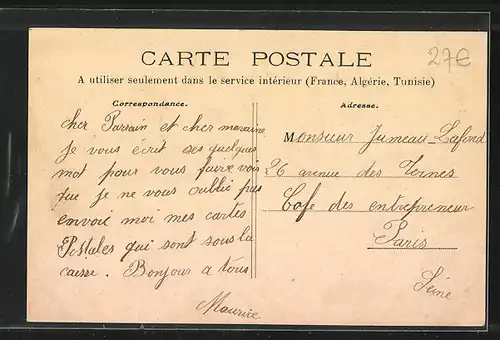 27€
CARTE POSTALE
A utiliser seulement dans le service intérieur (France, Algérie, Tunisie)
Correspondance.
cher Parrain et cher maraine
je vous ecrit ses quelques
mot pour vous faire voir
que je ne vous oublié pas
envoie moi mes cartes
Postales qui sont sous la
caisse. Bonjour a tous
Maurice
Adresse.
Monsieur Jumeau-Lafond
26 avenue des Ternes
Cafe des entrepreneur
Paris
Seine